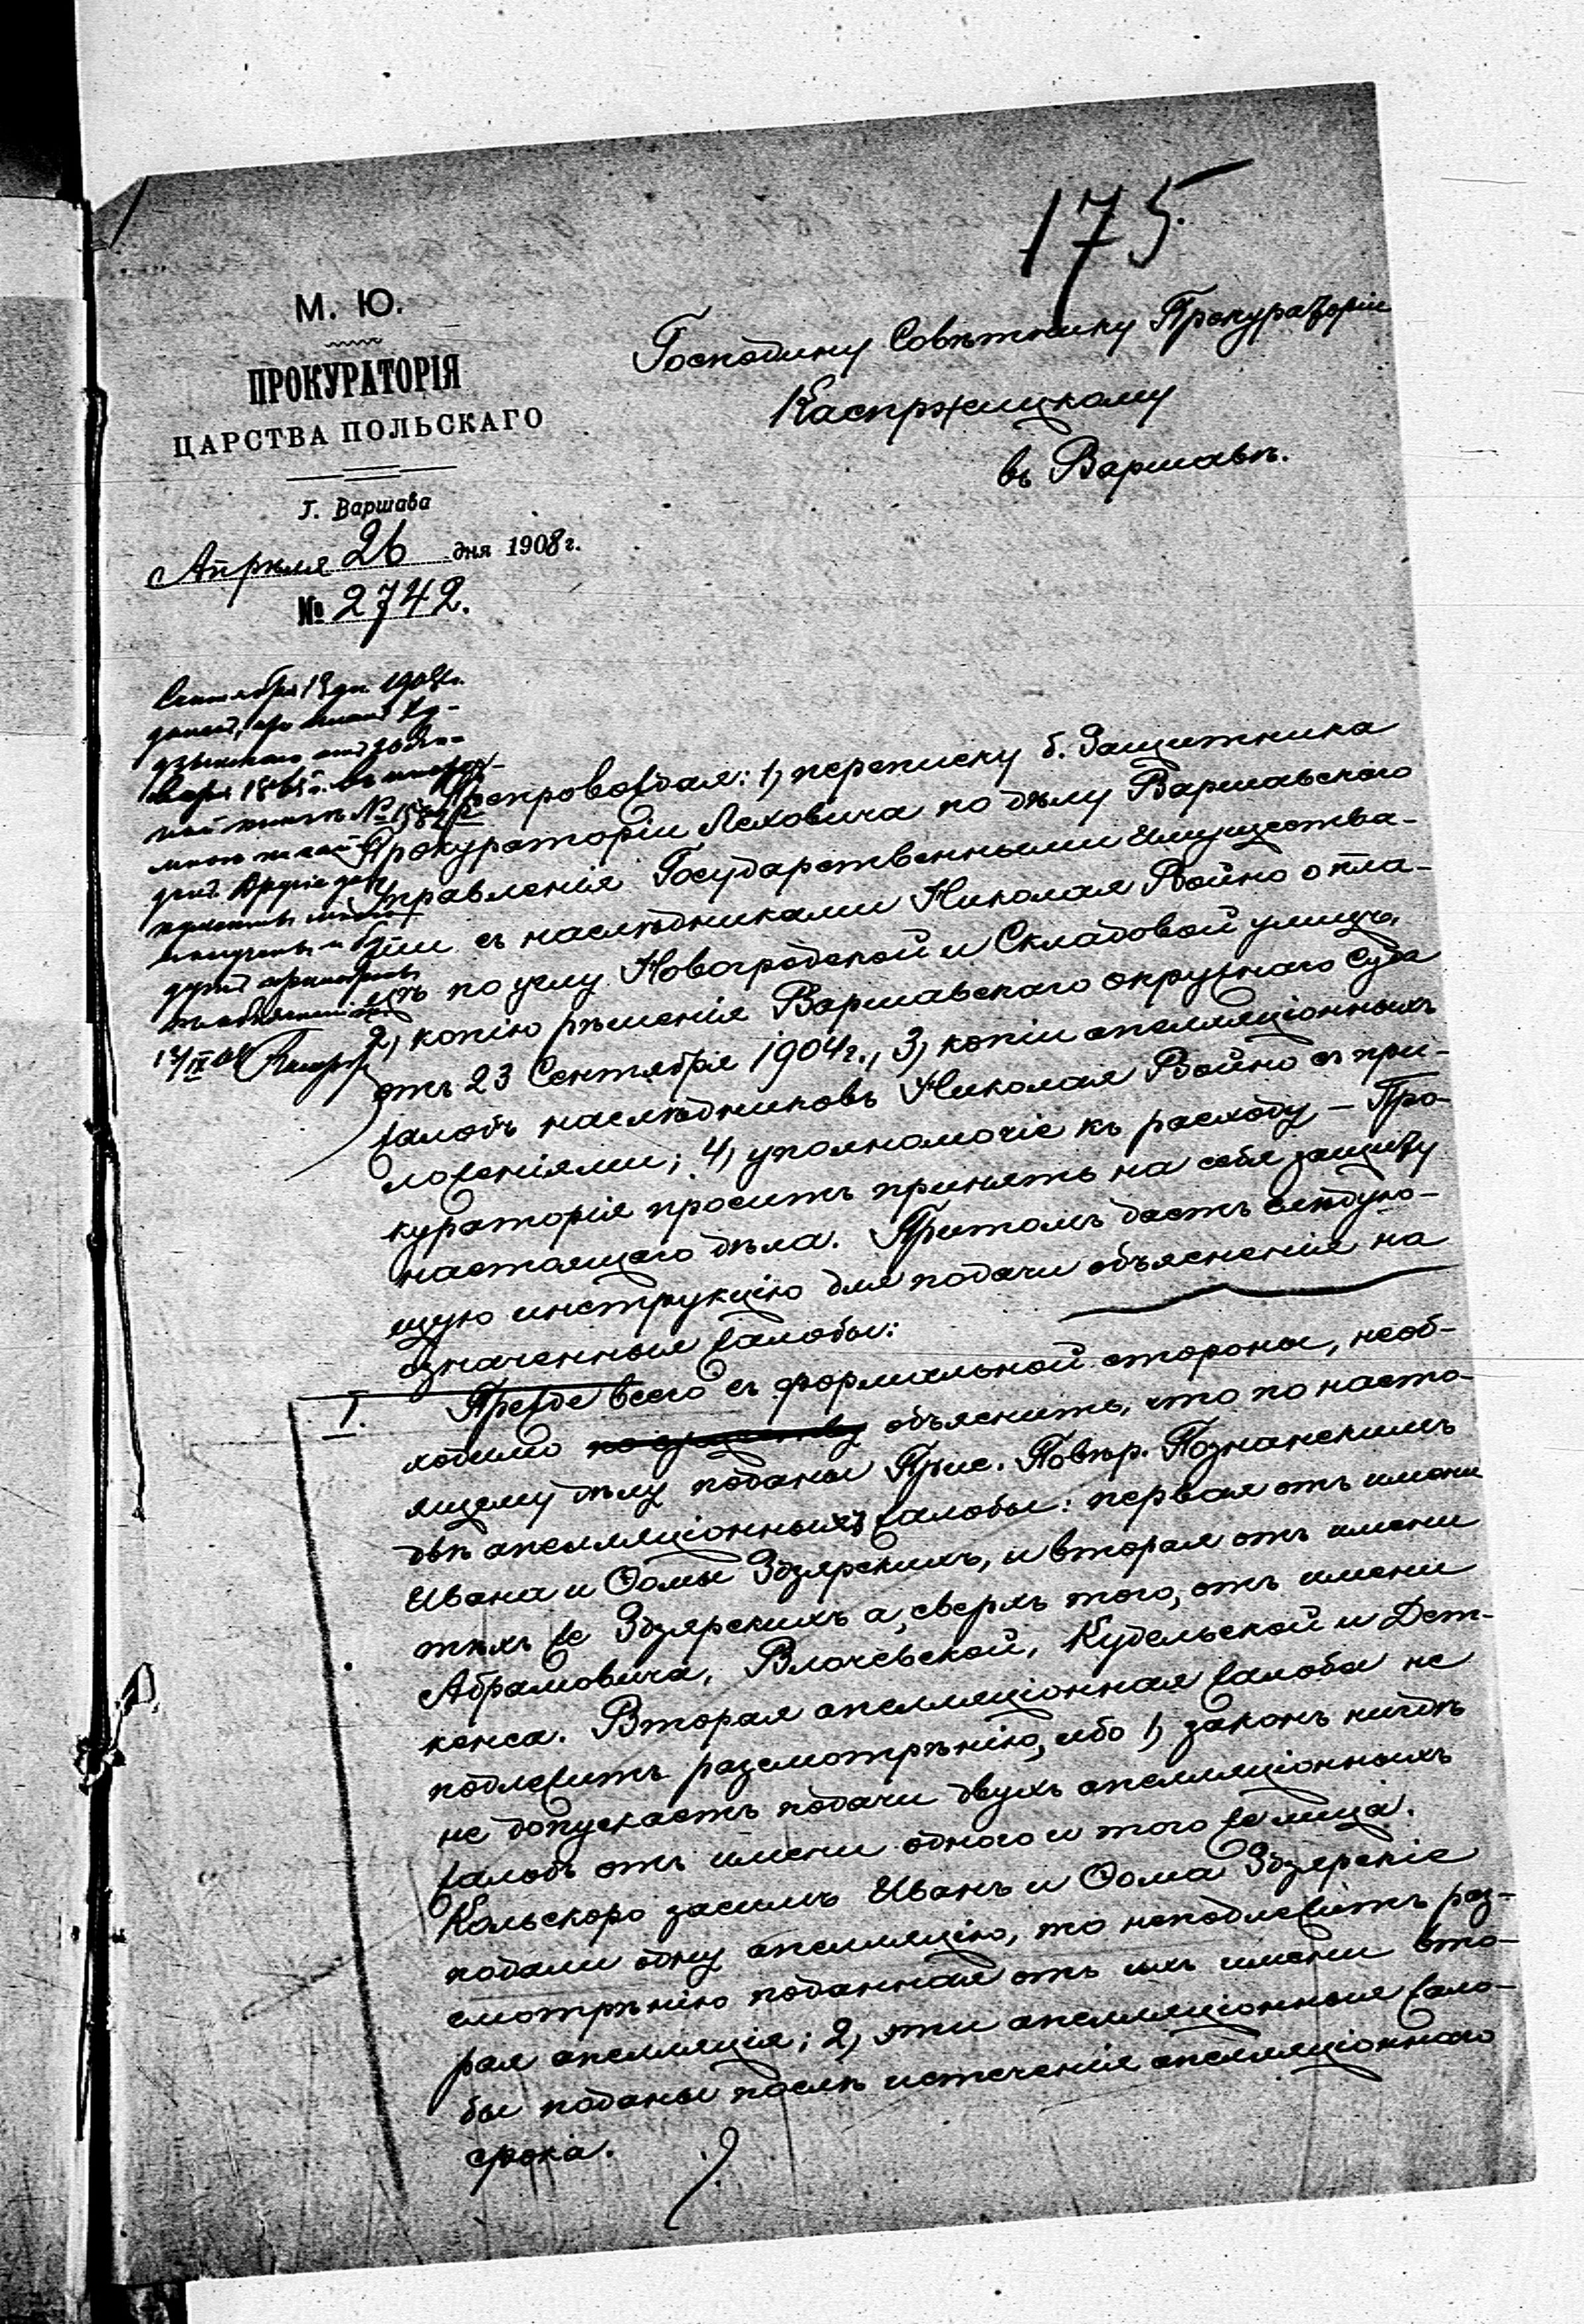 175.
М. Ю.
ПРОКУРАТОРІЯ
ЦАРСТВА ПОЛЬСКАГО
Г. Варшава
Апрѣля 26 дня 1908 г.
№ 2742.
Господину Совѣтнику Прокураторіи
Каспржицкому
въ Варшавѣ.
Сентября
Препровождая: 1, переписку б. Защитника
Прокураторіи Леховича по дѣлу Варшавскаго
Управленія Государственными Имущества-
ми съ наслѣдниками Николая Война о пла-
цѣ по углу Новогродской и Складовой улицъ,
2, копію рѣшенія Варшавскаго окружнаго Суда
отъ 23 Сентября 1904 г., 3, копіи апелляціонныхъ
жалобъ наслѣдниковъ Николая Война съ при-
ложеніями; 4, уполномочіе къ расходу – Про-
кураторія проситъ принять на себя защиту
настоящаго дѣла. Притомъ даетъ слѣдую-
щую инструкцію для подачи объясненія на
означенныя жалобы:
I. Прежде всего съ формальной стороны, необ-
ходимо по существу объяснить, что по насто-
ящему дѣлу поданы Прис. Повѣр. Познанскимъ
двѣ апелляціонныхъ жалобы: первая отъ имени
Ивана и Ѳомы Здзярскихъ, и вторая отъ имени
тѣхъ же Здзярскихъ а, сверхъ того, отъ имени
Абрамовича, Влочевской, Кудельской и Дет-
кенса. Вторая апелляціонная жалоба не
подлежитъ разсмотрѣнію, ибо 1, законъ нигдѣ
не допускаетъ подачи двухъ апелляціонныхъ
жалобъ отъ имени одного и того же лица.
Кольскоро засимъ Иванъ и Ѳома Здзярскіе
подали одну апелляцію, то неподлежитъ раз-
смотрѣнію поданная отъ ихъ имени вто-
рая апелляція; 2, эти апелляціонныя жало-
бы поданы послѣ истеченія апелляціоннаго
срока.